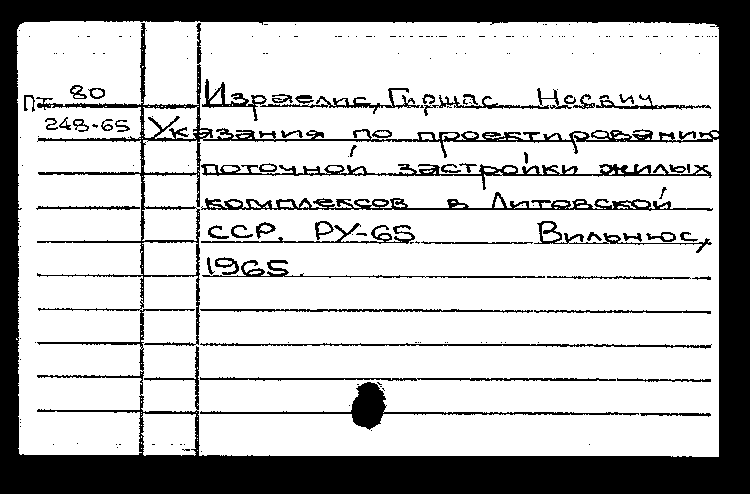 Пт 80
248-65
Израелис, Гиршас Носвич
Указания по проектированию
поточной застройки жилых
комплексов в Литовской
ССР. РУ-65 Вильнюс,
1965.